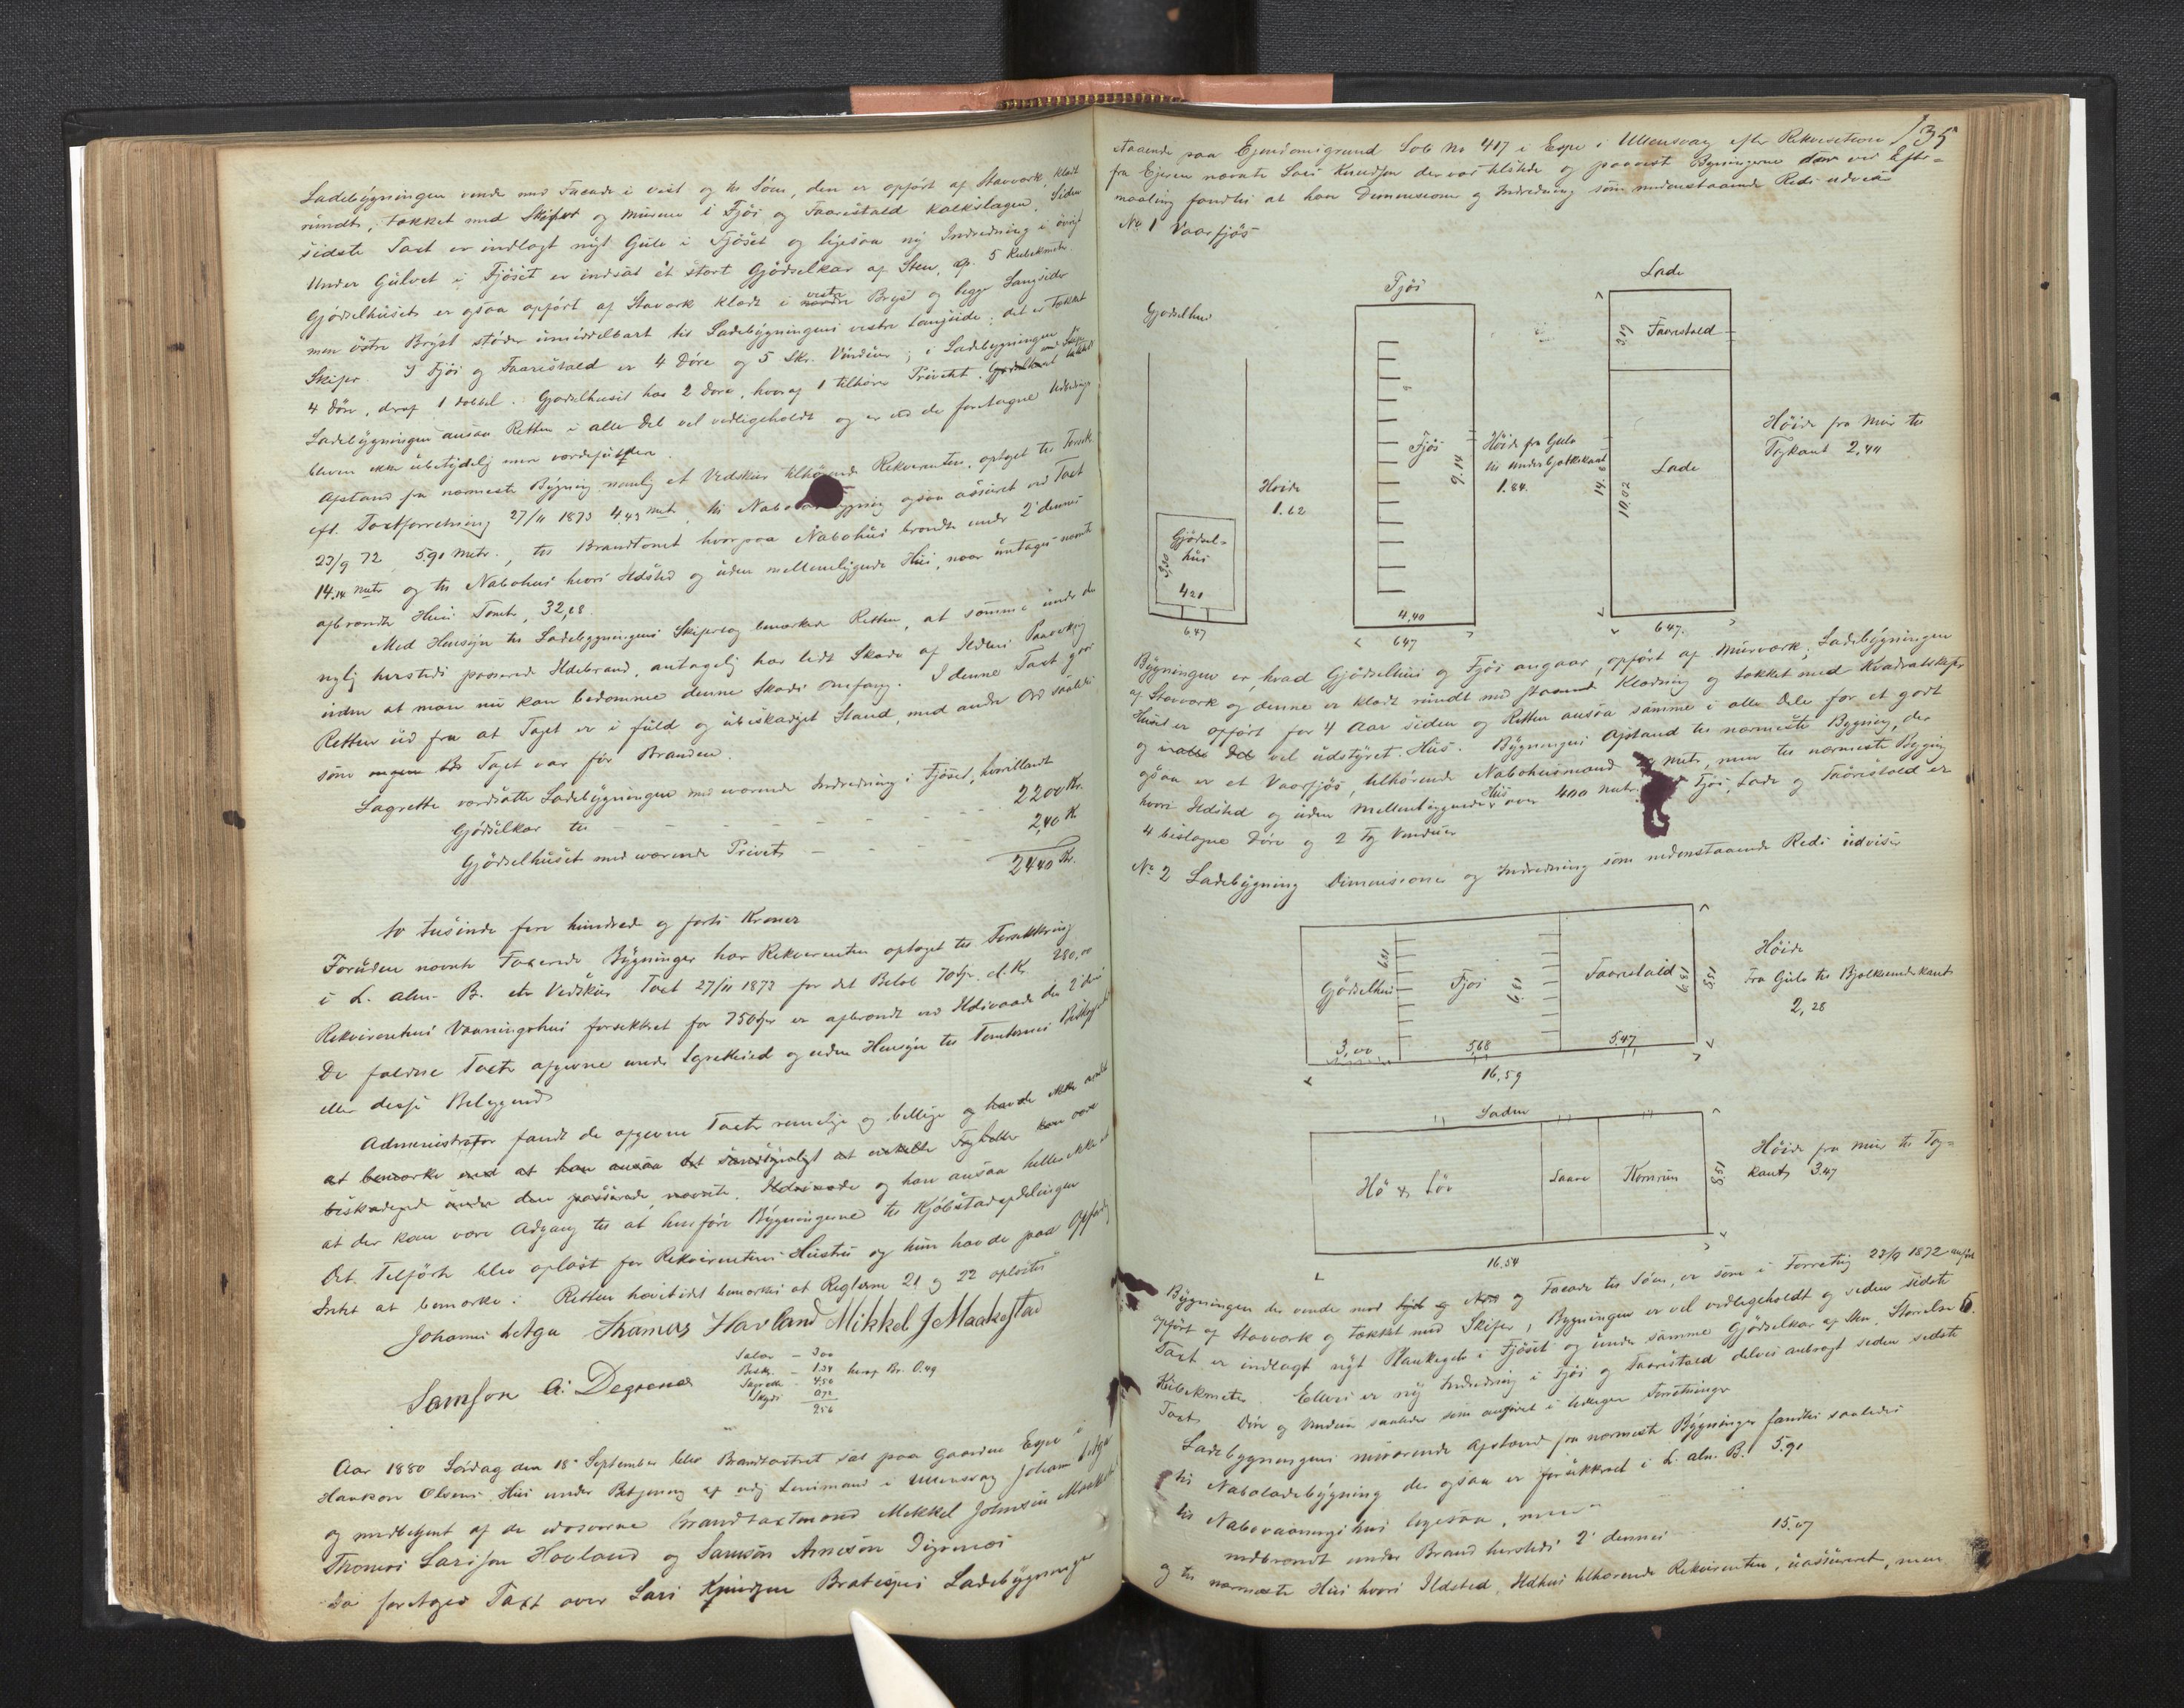 Ladebÿgningen vender med Facade i vest og til Sóen, den er opfórt af Stavværk, klædt
rundt, tækket med Skifer og Murene i Fjós og Faarestald kalkslagen. Siden
sidste Taxt er indlagt nyt Gulv i Fjóset og ligesaa ny Indredning i óvrigt
Under Gulvet i Fjóset er indsat et stort Gjódselkar af Sten, 5 Kubikmeter.
Gjódselhuset er ogsaa opfórt af Stavværk klædt i vestre Bryst og begge Langsider
men óstre Bryst stóder umiddelbart til Ladebÿgningens vestre Langside; det er tækket
Skifer. I Fjós og Faarestald er 4 Dóre og 5 Vinduer; i Ladebygningen
4 Dóre, deraf 1 dobbel. Gjódselhuset har 2 Dóre, hvoraf 1 tilhórer Privetet.
Ladebÿgningen ansaa Retten i alle Del vel vedligeholdt og er ved de foretagne
bleven ikke ubetydelig mer værdifuldere.
Afstand fra nærmeste Bÿgning nemlig et Vedskur tilhórende Rekvirenten, optaget til Forsik
eft. Taxtforretning 27/11 1873 4,43 metr, til Nabo ogsaa assureret ved Taxt
23/9 72 5.90 metr., til Brandtomt hvorpaa Nabohus brændte under 2 dennes
14.14 metr og til Nabohus hvori Ildsted og uden mellemliggende Hus, naar undtages nævnte
afbrændte Huus Tomt, 32,28.
Med Hensyn til Ladebygningens Skifertag bemærker Retten, at samme under den
nylig hersteds passerede Ildebrand, antagelig har lidt Skade af Ildens Paavirkning
uden at man nu kan bedómme denne Skades Omfang. I denne Taxt gaar
Retten ud fra at Taget er i fuld og ubeskadiget Stand, med andre Ord saaledes
som Taget var fór Branden.
Lagrette værdsatte Ladebÿgningen med værende Indredning i Fjóset, hvoriblandt
Gjódselkar til - - - - - 2200 Kr.
Gjódselhuset med værende Privet - - - 240 K
2440 Kr.
to tusinde fire hundrede og forti Kroner
Foruden nævnte Taxerede Bÿgninger har Rekvirenten optaget til Forsikkring
i L. alm. B. et Vedskur Taxt 27/11 1873 for det Beløb 70 Spd. d. Kr. 280,00
Rekvirentens Vaaningshus forsikkret for 750 Spd er afbrændt ved Ildsvaade den 2 dennes
De faldne Taxter afgivne under Lagrettesed og uden Hensyn til Tomternes Beliggenhed
eller disses Belÿggende
Administrator fandt de afgivne Taxter rimelige og billige og havde ikke andet
at bemærke end at han ansaa det sandsynligt at enkelte Tagheller kan være
beskadigede under den passerede nævnte Ildsvaade og han ansaa heller ikke
at der kan være Adgang til at henfóre Bÿgningerne til Kjóbstadafdelingen
Det Tilfórte blev oplæst for Rekvirentens Hustru og hun havde paa Opfordring
Intet at bemærke. Retten hævet idet bemærkes at Reglerne 21 og 22 oplæstes
Johannes Aga Thomas Havland Mikkel J Maakestad
Samson A: Degrenæs
Salær - 300
1.34 heraf Br. 0.49
Lagrett - 4.50
Skyds 0.72
9.56
Aar 1880 Lórdag den 18de September blev Brandtaxtret sat paa Gaarden Espe i
Haakon Olsens Hus under Betjening af Lensmand i Ullensvang Johannes Aga
og medbetjent af de edsvorne Brandtaxtmænd Mikkel Johnsen Maakestad
Thomas Larssen Hovland og Samson Arneson Digrenæs
for Tages Taxt over Lars Knudsen Bratespes Ladebÿgninger
135
staaende paa Ejendomsgrund Lób No 417 i Espe i Ullensvang efter Rekvisition
fra Ejeren nævnte Lars Knudsen der var tilstede og paavist Bÿgningerne der ved Efter-
maaling fandtes at have Dimensioner og Indredning som nedenstaaende Rids udviser
No 1 Vaarfjós
Gjódselhus
Fjós
Lade
Faarestald
3,19
Fjós
9.14
Lade
10.02
Hóide fra Gulv
til underbjælkekant
1.84.
Hóide fra Mur til
Tagkant 2,44
Hóide
1.62
Gjódsel-
hus
4,20
647
4,40
647
647.
Bÿgningen er, hvad Gjódselhus og Fjós angaar, opfórt af Murværk; Ladebÿgningen
af Stavværk og denne er klædt rundt med staaende Klædning og tækket med Kvadratskifer
Huset er opfórt for 4 Aar siden og Retten ansaa samme i alle Dele for et godt
og vel udstÿret Hus. Bÿgningens Afstand til nærmeste Bygning, der
ogsaa er et Vaarfjós, tilhórende Nabohusmand metr, men til nærmeste Bygning
hvori Ildsted og uden mellemliggende Hus over 400 metr. Fjós, Lade og Faarestald er
4 beslagne Dóre og 2 Fag Vinduer
No 2 Ladebÿgning Dimensioner og Indredning som nedenstaaende Rids udviser
Gjódselhus
6.81
Fjós
6.81
Faarestald
6.81
551
3,00
5,68
5.47
16,59
Hóide
Fra Gulv til Bjælkeunderkant
2,28
Laden
Hó & Lóv
Laave
Kornrum
5.51
16.54
Hóide fra Mur til Tag-
kant 3.47
Bÿgningen der vender mod og Facade til Sóen, er som i Forretning 23/9 1872 anfórt
opfórt af Stavværk og tækket med Skifer, Bygningen er vel vedligeholdt og siden sidste
Taxt er indlagt nÿt Plankegulv i Fjóset og under samme Gjódselkar af Sten, Stórrelse 6
Kubikmeter. Ellers er ny Indredning i Fjós og Faarestald delvis anbragt siden sidste
Taxt. Dóre og Vinduer saaledes som angivet i tidligere Forretninger
Ladebygningens nuværende Afstand fra nærmeste Bÿgninger fandtes saaledes
til Naboladebÿgning der ogsaa er forsikkret i L. alm. B. 5.90
til Nabovaaningshus ligesaa, men
nedbrændt under Brand hersteds 2 dennes 15.07
og til nærmeste Hus hvori Ildsted, Ildhus tilhórende Rekvirenten, uassureret, men